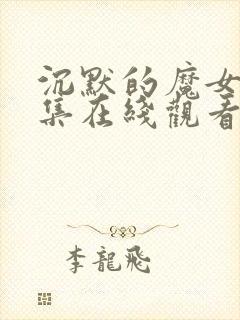 沉默的魔女
集在綫觀看
李龍飛